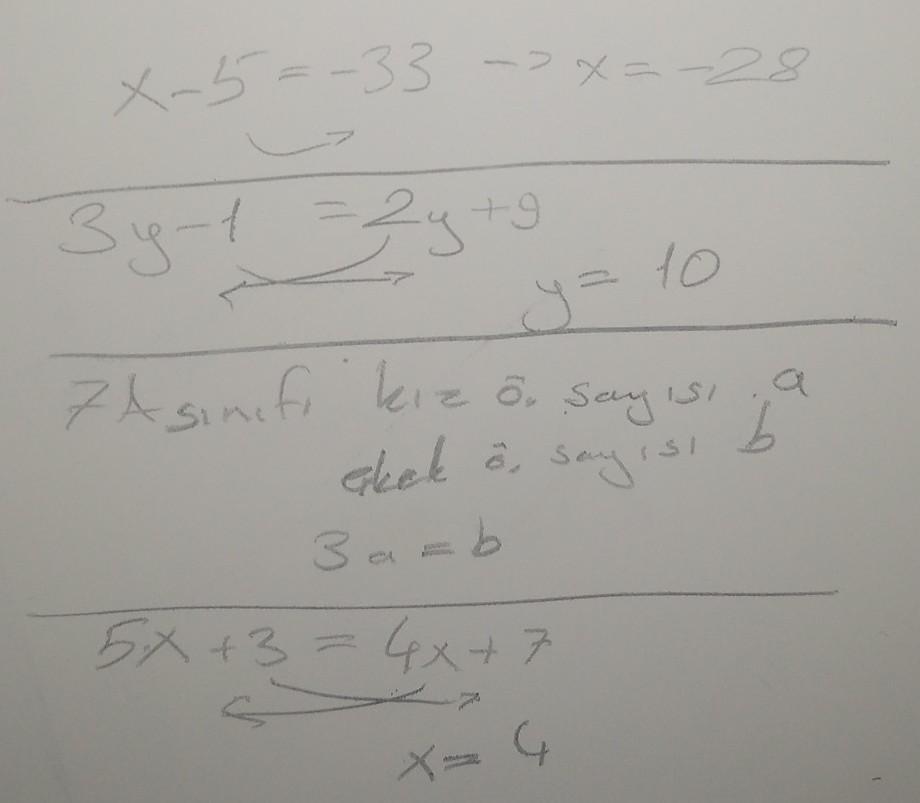 x-5 = -33 -> x = -28
3y-1 = 2y+9
y = 10
7A sınıfı kız ö. sayısı a
erkek ö. sayısı b
3a = b
5x + 3 = 4x + 7
x = 4